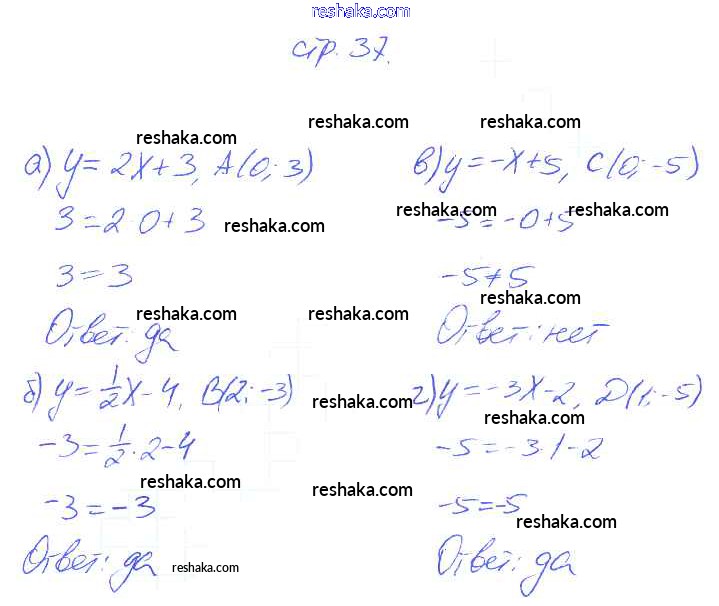 reshaka.com
стр. 37.
reshaka.com
reshaka.com reshaka.com
а) y = 2x + 3, A(0; 3)
3 = 2·0 + 3
reshaka.com
3 = 3
reshaka.com
Ответ: да
reshaka.com
б) y = 1/2 x - 4, B(2; -3)
-3 = 1/2 · 2 - 4
reshaka.com
-3 = -3
Ответ: да
reshaka.com
в) y = -x + 5, C(0; -5)
reshaka.com reshaka.com
-5 = -0 + 5
-5 ≠ 5
reshaka.com
reshaka.com
Ответ: нет
г) y = -3x - 2, D(1; -5)
reshaka.com
-5 = -3·1 - 2
reshaka.com
-5 = -5
reshaka.com
Ответ: да